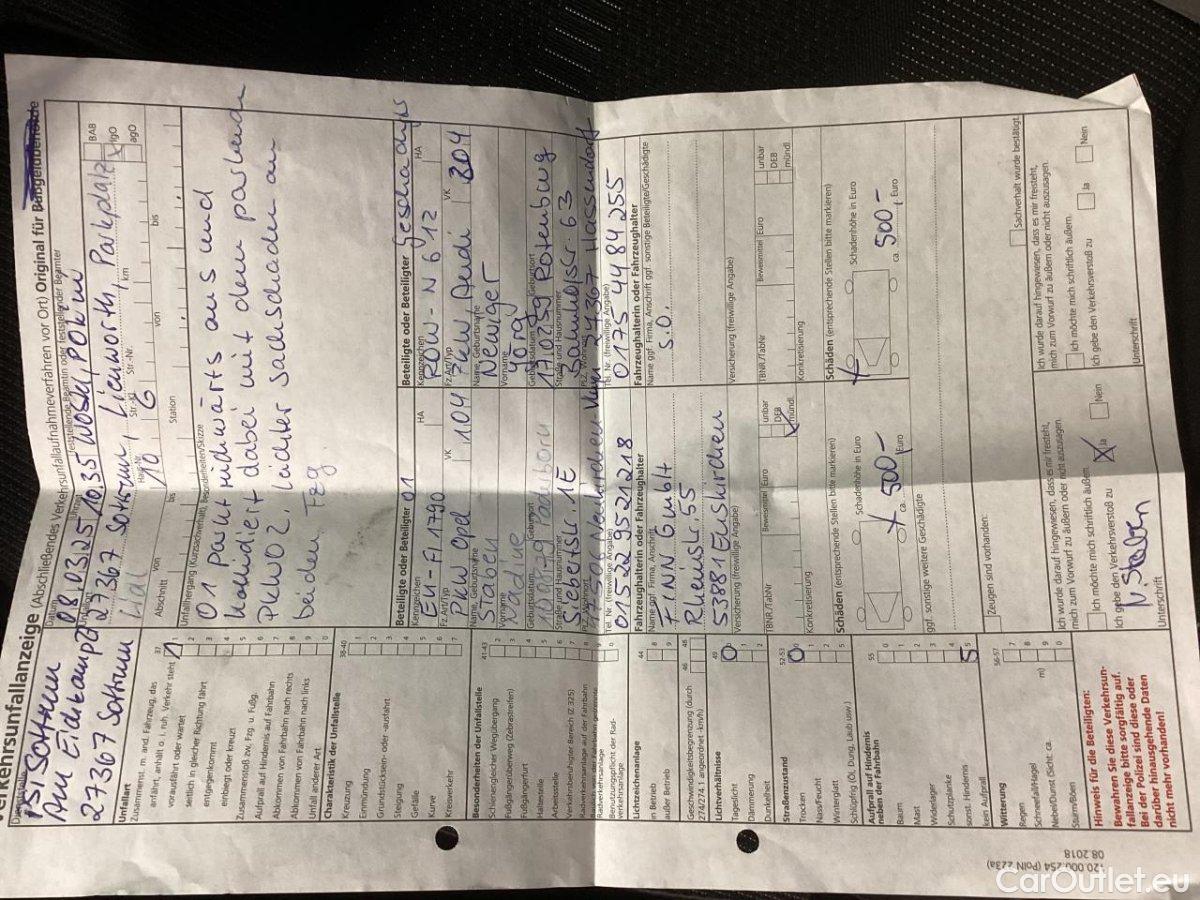 Verkehrsunfallanzeige (Abschließendes Verkehrsunfallaufnahmeverfahren vor Ort) Original für
Am Eichkamp
27367 Sottrum
Datum
08.03.25
10.35
Feststellende Beamtin oder feststellender Beamter
27367 Sottrum, Lienworth, Parkplatz
BAB
igO
agO
Abschnitt
von
bis
Station
Str.-Nr.
von
km
bis
Unfallhergang (Kurzsachverhalt), Besonderheiten/Skizze
01 parkt rückwärts aus und
kollidiert dabei mit dem parkenden
PKW 02, leichter Sachschaden an
beiden Fzg
Unfallart
37
Zusammenst. m. and. Fahrzeug, das
anfährt, anhält o. i. ruh. Verkehr steht 1
vorausfährt oder wartet 2
seitlich in gleicher Richtung fährt 3
entgegenkommt 4
einbiegt oder kreuzt 5
Zusammenstoß zw. Fzg. u. Fußg. 6
Aufprall auf Hindernis auf Fahrbahn 7
Abkommen von Fahrbahn nach rechts 8
Abkommen von Fahrbahn nach links 9
Unfall anderer Art 0
Charakteristik der Unfallstelle
38-40
Kreuzung 1
Einmündung 2
Grundstücksein- oder -ausfahrt 3
Steigung 4
Gefälle 5
Kurve 6
Kreisverkehr 7
Besonderheiten der Unfallstelle
41-43
Schienengleicher Wegübergang 2
Fußgängerüberweg (Zebrastreifen) 3
Fußgängerfurt 4
Haltestelle 5
Arbeitsstelle 6
Verkehrsberuhigter Bereich (Z 325)
Lichtzeichenanlage
44
in Betrieb 8
außer Betrieb 9
Geschwindigkeitsbegrenzung (durch
Lichtverhältnisse
49
Tageslicht 0
Dämmerung 1
Dunkelheit 2
Straßenzustand
52-53
Trocken 0
Nass/Feucht 1
Winterglatt 2
Schlüpfrig (Öl, Dung, Laub usw.) 5
Aufprall auf Hindernis
neben der Fahrbahn
55
Baum 0
Mast 1
Widerlager 2
Schutzplanke 3
sonst. Hindernis 4
kein Aufprall 5
Witterung
56-57
Regen 7
Schneefall/Hagel 8
Nebel/Dunst (Sicht: ca. m) 9
Sturm/Böen 0
Hinweis für die Beteiligten:
Bewahren Sie diese Verkehrsun-
fallanzeige bitte sorgfältig auf.
Bei der Polizei sind diese oder
darüber hinausgehende Daten
nicht mehr vorhanden!
Beteiligte oder Beteiligter 01
Kennzeichen
HA
EU-FI 1790
Fz.Art/Typ
VK
PKW Opel
104
Name, Geburtsname
Staben
Vorname
Nadine
Geburtsdatum, Geburtsort
Straße und Hausnummer
Siebertstr. 1E
PLZ, Wohnort
Tel. Nr. (freiwillige Angabe)
01522 9521218
Fahrzeughalterin oder Fahrzeughalter
Name ggf. Firma, Anschrift
FINN GmbH
Rheinstr. 55
53881 Euskirchen
Versicherung (freiwillige Angabe)
TBNR./TabNr
Beweismittel
Euro
unbar
DEB
mündl.
Konkretisierung
Schäden (entsprechende Stellen bitte markieren)
Schadenhöhe in Euro
ca. 500,- Euro
ggf. sonstige weitere Geschädigte
Zeugen sind vorhanden:
Ich wurde darauf hingewiesen, dass es mir freisteht,
mich zum Vorwurf zu äußern oder nicht auszusagen.
Ich möchte mich schriftlich äußern.
Ich gebe den Verkehrsverstoß zu
Ja
Nein
N. Staben
Unterschrift
Beteiligte oder Beteiligter
Kennzeichen
HA
ROW-N 612
Fz.Art/Typ
VK
PKW Audi
204
Name, Geburtsname
Vorname
Geburtsdatum, Geburtsort
Rotenburg
Straße und Hausnummer
Bahnhofstr. 63
PLZ, Wohnort
27367 Hassendorf
Tel. Nr. (freiwillige Angabe)
0175 4484255
Fahrzeughalterin oder Fahrzeughalter
Name ggf. Firma, Anschrift ggf. sonstige Beteiligte/Geschädigte
s.o.
Versicherung (freiwillige Angabe)
TBNR./TabNr
Beweismittel
Euro
unbar
DEB
mündl.
Konkretisierung
Schäden (entsprechende Stellen bitte markieren)
Schadenhöhe in Euro
ca. 500,- Euro
Sachverhalt wurde bestätigt.
Ich wurde darauf hingewiesen, dass es mir freisteht,
mich zum Vorwurf zu äußern oder nicht auszusagen.
Ich möchte mich schriftlich äußern.
Ich gebe den Verkehrsverstoß zu
Ja
Nein
Unterschrift
120 000 254 (PolN 223a)
08.2018
CarOutlet.eu